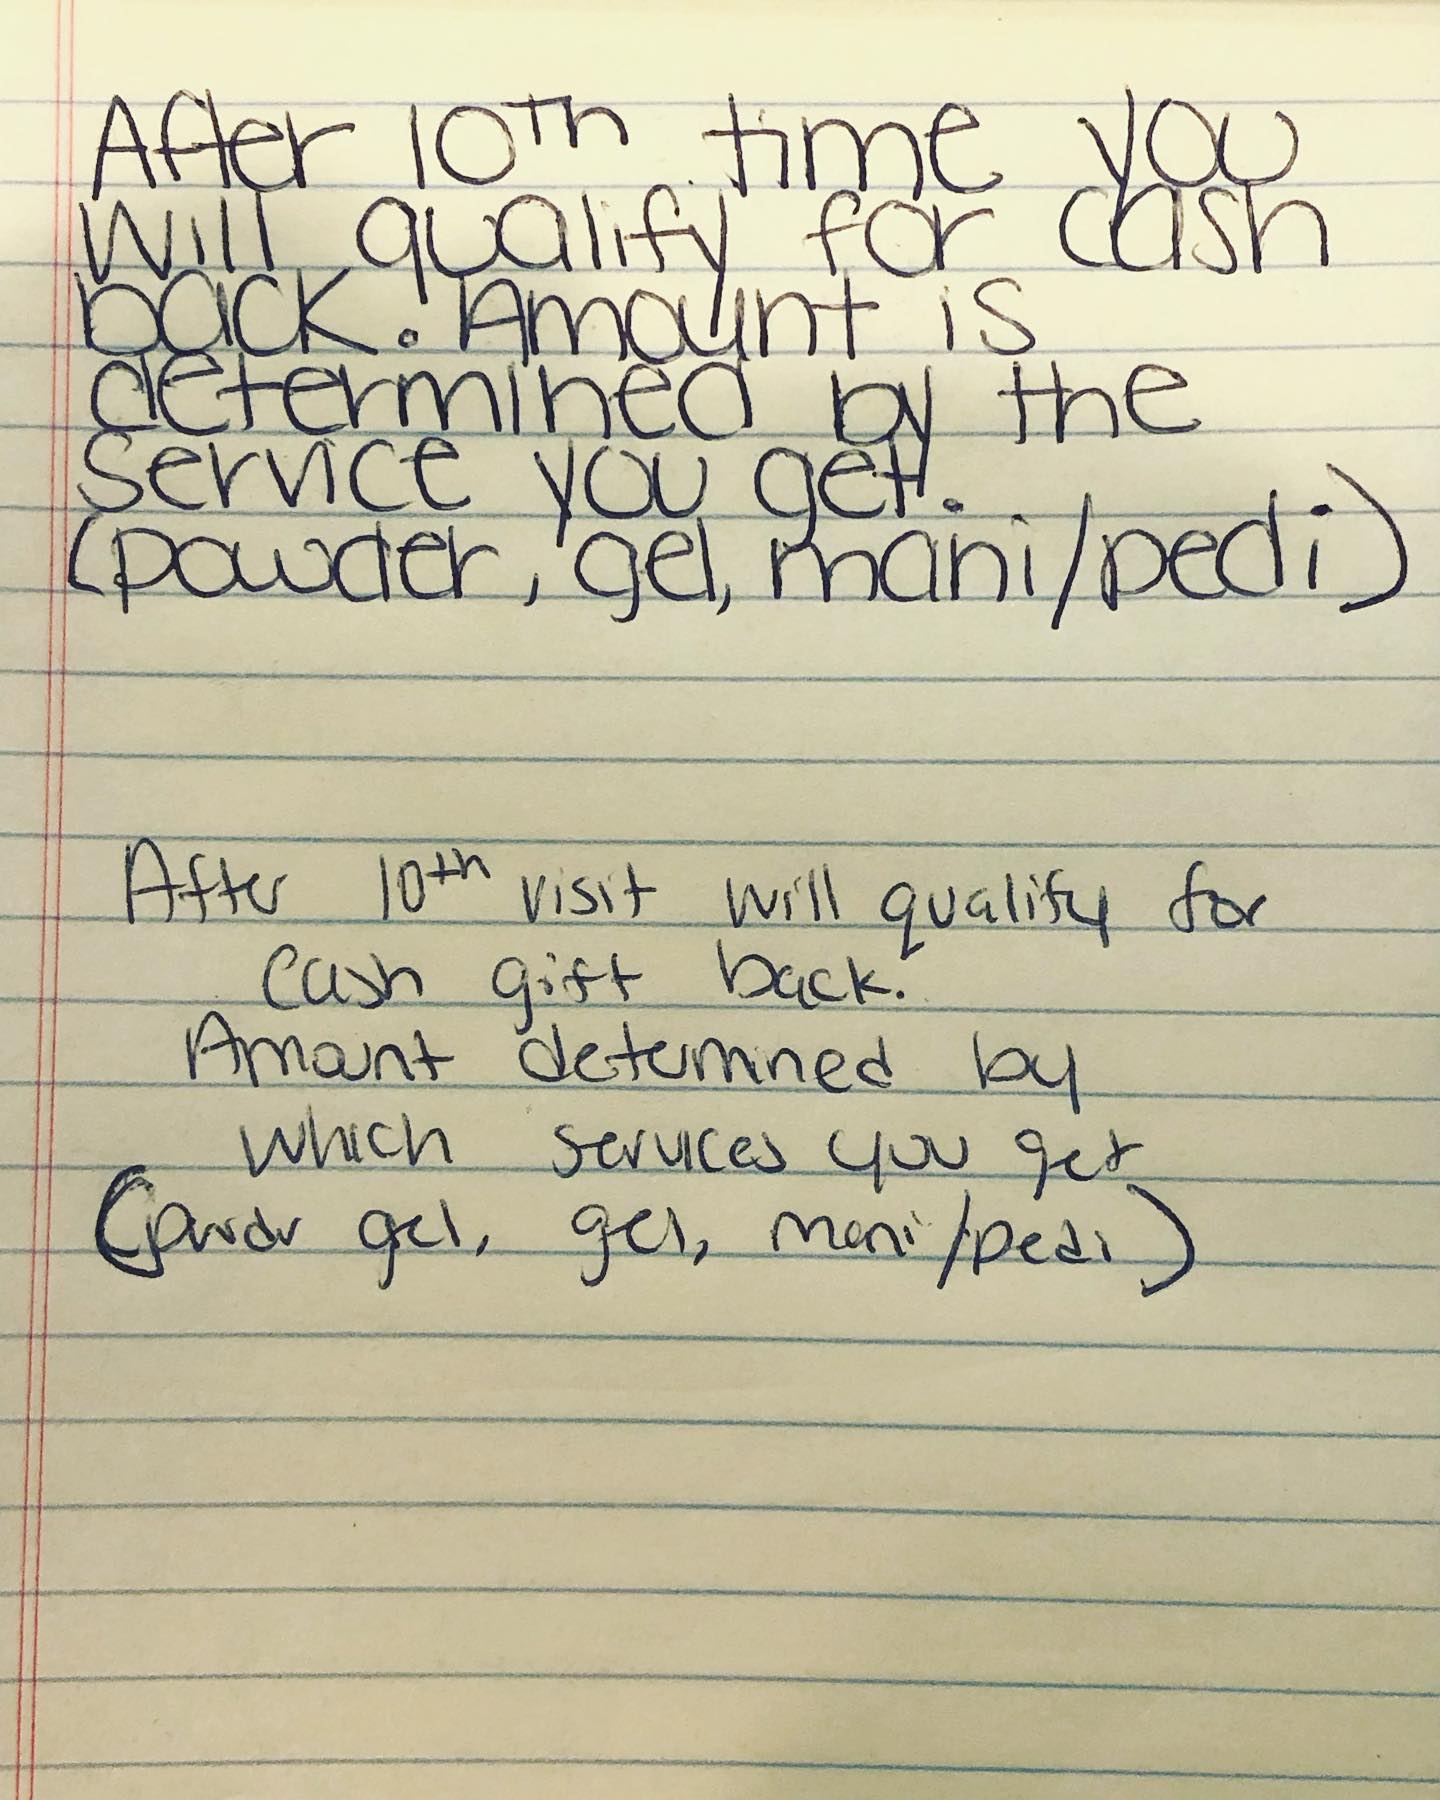 After 10th time you
will qualify for cash
back. Amount is
determined by the
service you get.
(powder, gel, mani/pedi)
After 10th visit will qualify for
cash gift back.
Amount determined by
which services you get
(powdr gel, gel, mani/pedi)